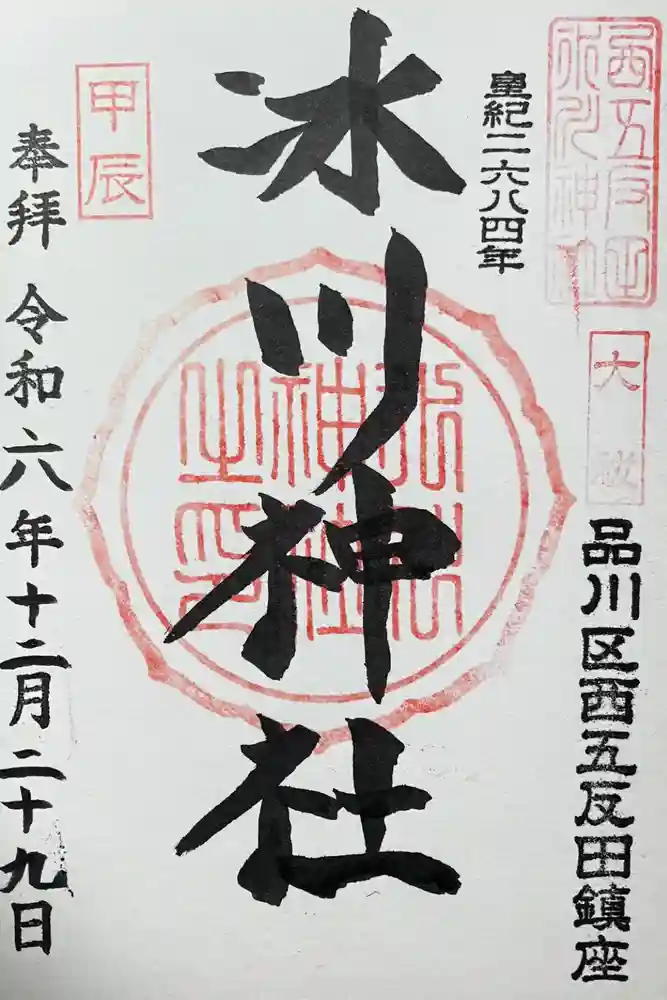 西五反田
氷川神社
大安
品川区西五反田鎮座
皇紀二六八四年
氷川神社
氷川
神社
之印
甲辰
奉拝 令和六年十二月二十九日